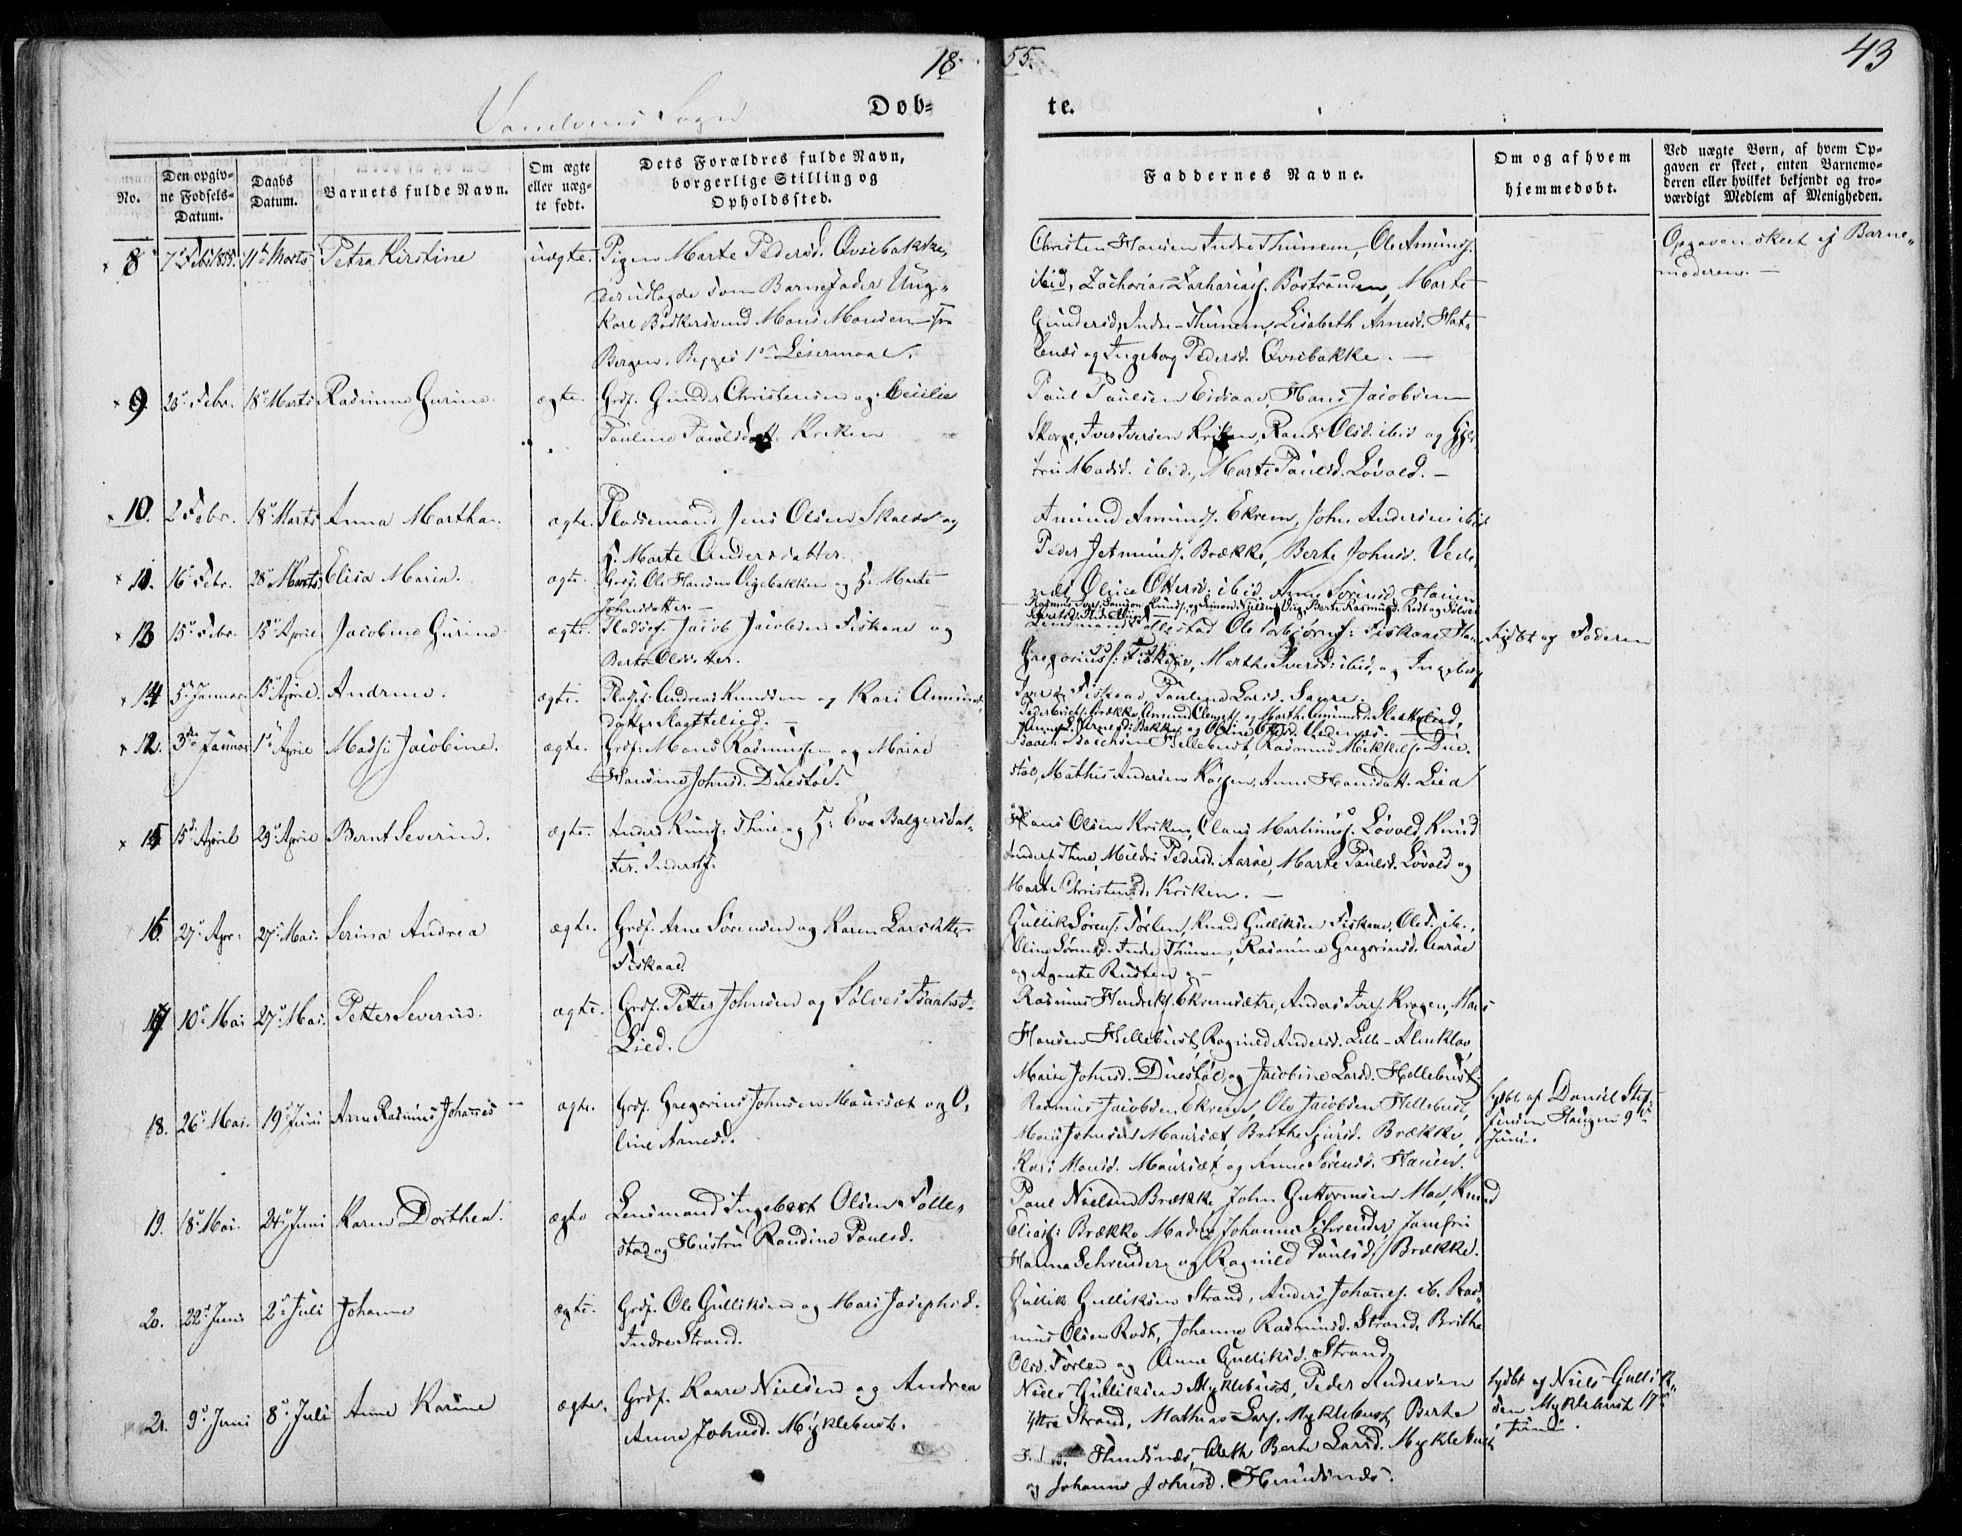 18
55.
43
Sogn
Døb=
te.
No.
Den opgiv-
ne Fødsels-
Datum.
Daabs
Datum.
Barnets fulde Navn.
Om ægte
eller uæg-
te født.
Dets Forældres fulde Navn,
borgerlige Stilling og
Opholdssted.
Faddernes Navne.
Om og af hvem
hjemmedøbt.
Ved uægte Børn, af hvem Op-
gaven er skeet, enten Barnemo-
deren eller hvilket bekjendt og tro-
værdigt Medlem af Menigheden.
8 7de Febr 1855. 11te Marts Petra Kirstine uægte. Pigen Marte Pedersd. Qvisebakke,
der udlagde som Barnefader Ung-
karl Bødkersvend Mons Monsen fra
Bergen. Begges 1ste Leiermaal.
Christen Hansen Indre Thunem, Ole Amunds.
ibid, Zacharias Zachariass. Bøstranden, Marte
Gundersd. Indre-Thunem, Lisabeth Arnesd. Hat-
lenæs og Ingeborg Pedersd. Qvisebakke. —
Opgaven skeet af Barne-
moderen. —
9. 25 Febr. 18 Marts Rasmine Gurine. ægte. Grdf. Gunder Christensen og Cecilie
Pauline Paulsdatt. Kriken
Paul Paulsen Eidsaae, Hans Jacobsen
Skorge, Iver Iversen Kriken, Rande Olsd. ibid og Gjer-
tru Madsd. ibid, Marte Paulsd. Løvold. —
10. 2 Febr. 18 Marts Anna Martha. ægte. Pladsemand Jens Olsen Skalde og
H. Marte Andersdatter.
Amund Amunds. Ekrem, John Andersen ibid
Peder Jetmunds. Brække, Berte Johnsd. Vede-
næs, Oline Ottersd. ibid, Anne Sørensd. Hauen
11. 16 Febr. 28 Marts Elisa Maria. ægte. Grdf. Ole Hansen Olgebakken og H. Marte
Johnsdatter. —
13 15 Febr. 15 April Jacobine Gurine. ægte. Pladsf. Jacob Jacobsen Fiskaae og
Berte Olsdatter.
Ole Torbjørns: Fiskaae
Gregoriuss: Fiskaae, Marthe Iversd: ibid, og Ingeborg
Fiskaae, Pauline Larsd. Saure.
hjdbt af Faderen
14 5 Januar 15 April. Andrine. ægte. Pladsf. Andreas Knudsen og Kari Amunds-
datter Slagtelied. —
12. 3die Januar 1ste April Madsi Jacobine. ægte. Grdf: Mons Rasmussen og Marie
Hansine Johnsd. Duestøl.
Hellebust, Rasmus Mikkels. Due-
støl, Mathis Andersen Kogen, Anne Hansdatt. Lied
15 15de April 29 April Bernt Severin. ægte. Anders Knuds. Thue og H: Eva Balzersdat-
ter. Inderst.
Hans Olsen Kriken, Claus Martinus. Løvold, Knud
Anders. Thue, Mildri Pedersd. Aarøe, Marte Paulsd. Løvold og
Marte Christensd. Kriken. —
16. 27 Apr: 27 Mai. Serina Andrea ægte. Grdf. Arne Sørensen og Karen Larsdatter
Fiskaae.
Gullik Sørens. Sørlen, Knud Gulliksen Fiskaae, Olsd. ib.,
Oline Sørensd. Indre Thunem, Rasmine Gregoriusd. Aarøe
og Agnete Rusten. —
17 10 Mai 27 Mai. Petter Severin. ægte. Grdf. Petter Johnsen og Sølvei Isaachsd.
Lied.
Rasmus Hendriks. Ekremsætre, Anders Ivers. Krogen, Mons
Hansen Hellebust, Ragnild Andersd. Lille-Almklov,
Marie Johnsd. Duestøl og Jacobine Larsd. Hellebust.
18. 26 Mai. 19 Juni Arne Rasmus Johannes ægte. Grdf. Gregorius Johnsen Maursæt og O-
line Arnesd.
Rasmus Jacobsen Ekrem, Ole Jacobsen Hellebust,
Mons Johnsen Maursæt, Brithe Sjursd. Brække,
Kari Monsd. Maursæt og Anne Sørensd. Hauen.
hjdbt af Daniel Stef-
fensen Haugen 9de
Juni.
19. 18 Mai. 24 Juni Karen Dorthea. ægte Lensmand Ingebert Olsen Folle-
stad og Hustru Randine Paulsd.
Paul Nielsen Brække, John Guttormsen Moe, Knud
Eliass: Brække, Madme Johanne Schrøuder, Jomfru
Hanna Schrøuder og Ragnild Paulsd. Brække.
20. 22 Juni 2 Juli Johanne ægte. Grdf. Ole Gulliksen og Mari Josephsd.
Indre Strand.
Gullik Gulliksen Strand, Anders Johannes. ib. Ras-
mus Olsen Rødt, Johanne Rasmusd. Strand, Brithe
Olsd. Sørlen og Anne Gulliksd. Strand.
21. 9 Juni 8 Juli Anne Karine ægte. Grdf. Kaare Nielsen og Andrea
Anne Johnsd. Myklebust.
Niels Gulliksen Myklebust, Peder Andersen
Yttre Strand, Mathias Lars. Myklebust, Berte
Hundsnæs, Aleth Berte Larsd. Myklebust
og Johanne Johnsd. Hundsnæs.
hjdbt af Niels Gullik-
sen Myklebust 17de
Juni.